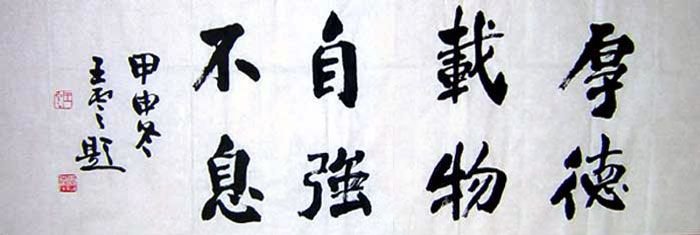 厚德
載物
自強
不息
甲申冬
王 題